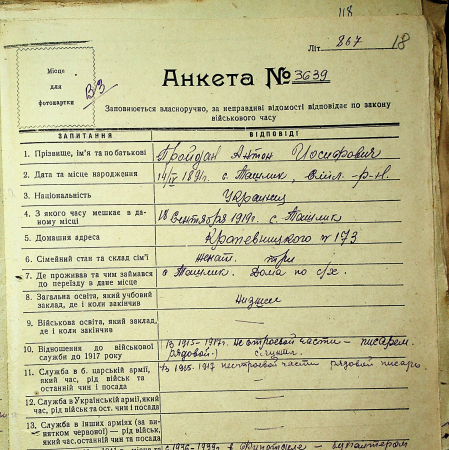 118
Літ 867 18
Місце
для
фотокартки
Анкета № 3639
Заповнюється власноручно, за неправдиві відомості відповідає по закону
військового часу
ЗАПИТАННЯ ВІДПОВІДІ
1. Прізвище, ім'я та по батькові Пройдан Антон Иосифович
2. Дата та місце народження с. Ташлик,
3. Національність Украинец
4. З якого часу мешкає в да-
ному місці 18 Сентября 1919 г. с. Ташлик
5. Домашня адреса Кропевницкого № 173
6. Сімейний стан та склад сім'ї Женат. три
7. Де проживав та чим займався
до переїзду в дане місце с Ташлик. Дома по с/х.
8. Загальна освіта, який учбовий
заклад, де і коли закінчив Низшее
9. Військова освіта, який заклад,
де і коли закінчив —
10. Відношення до військової
служби до 1917 року В 1915-1917г. нестроевой части – писарем
(рядовой.) служил.
11. Служба в б. царській армії,
який час, рід військ та
останній чин і посада В 1915-1917 нестроевой части рядовой писарь
12. Служба в Українській армії, який
час, рід військ та ост. чин і посада —
13. Служба в інших арміях (за ви-
нятком червоної) — рід військ,
який час, останній чин та посада —
с 1936-1939г. в – бухгалтером